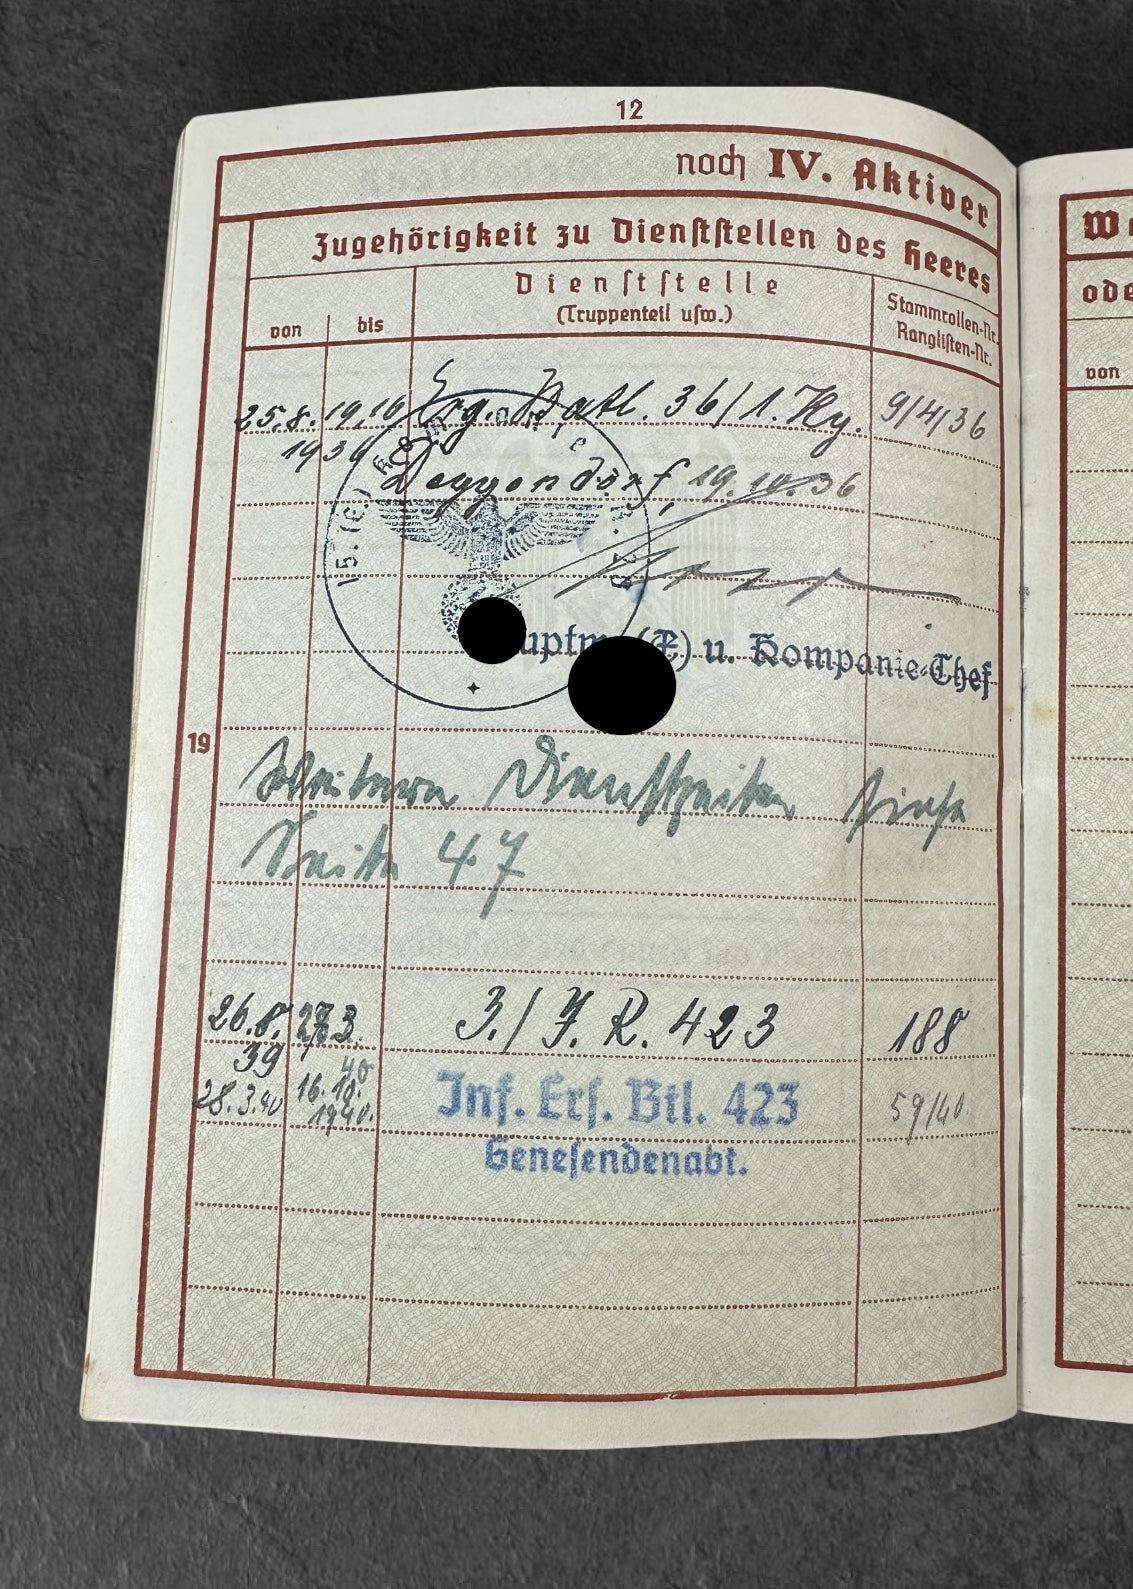 12
noch IV. Aktiver
Zugehörigkeit zu Dienststellen des Heeres
von
bis
Dienststelle
(Truppenteil usw.)
Stammrollen-Nr.
Ranglisten-Nr.
25.8. 19.10 Erg. Batl. 36/1. Ky. 9/4/36
1936 Deggendorf, 19. 10. 36
15. (E)
(E) u. Kompanie-Chef
19
Weitere Dienstzeiten siehe
Seite 47
26.8. 27.3. 3./J. R. 423 188
39 40
28.3.40 16.10. Inf. Ers. Btl. 423 59/40.
1940.
Genesendenabt.
oder
von